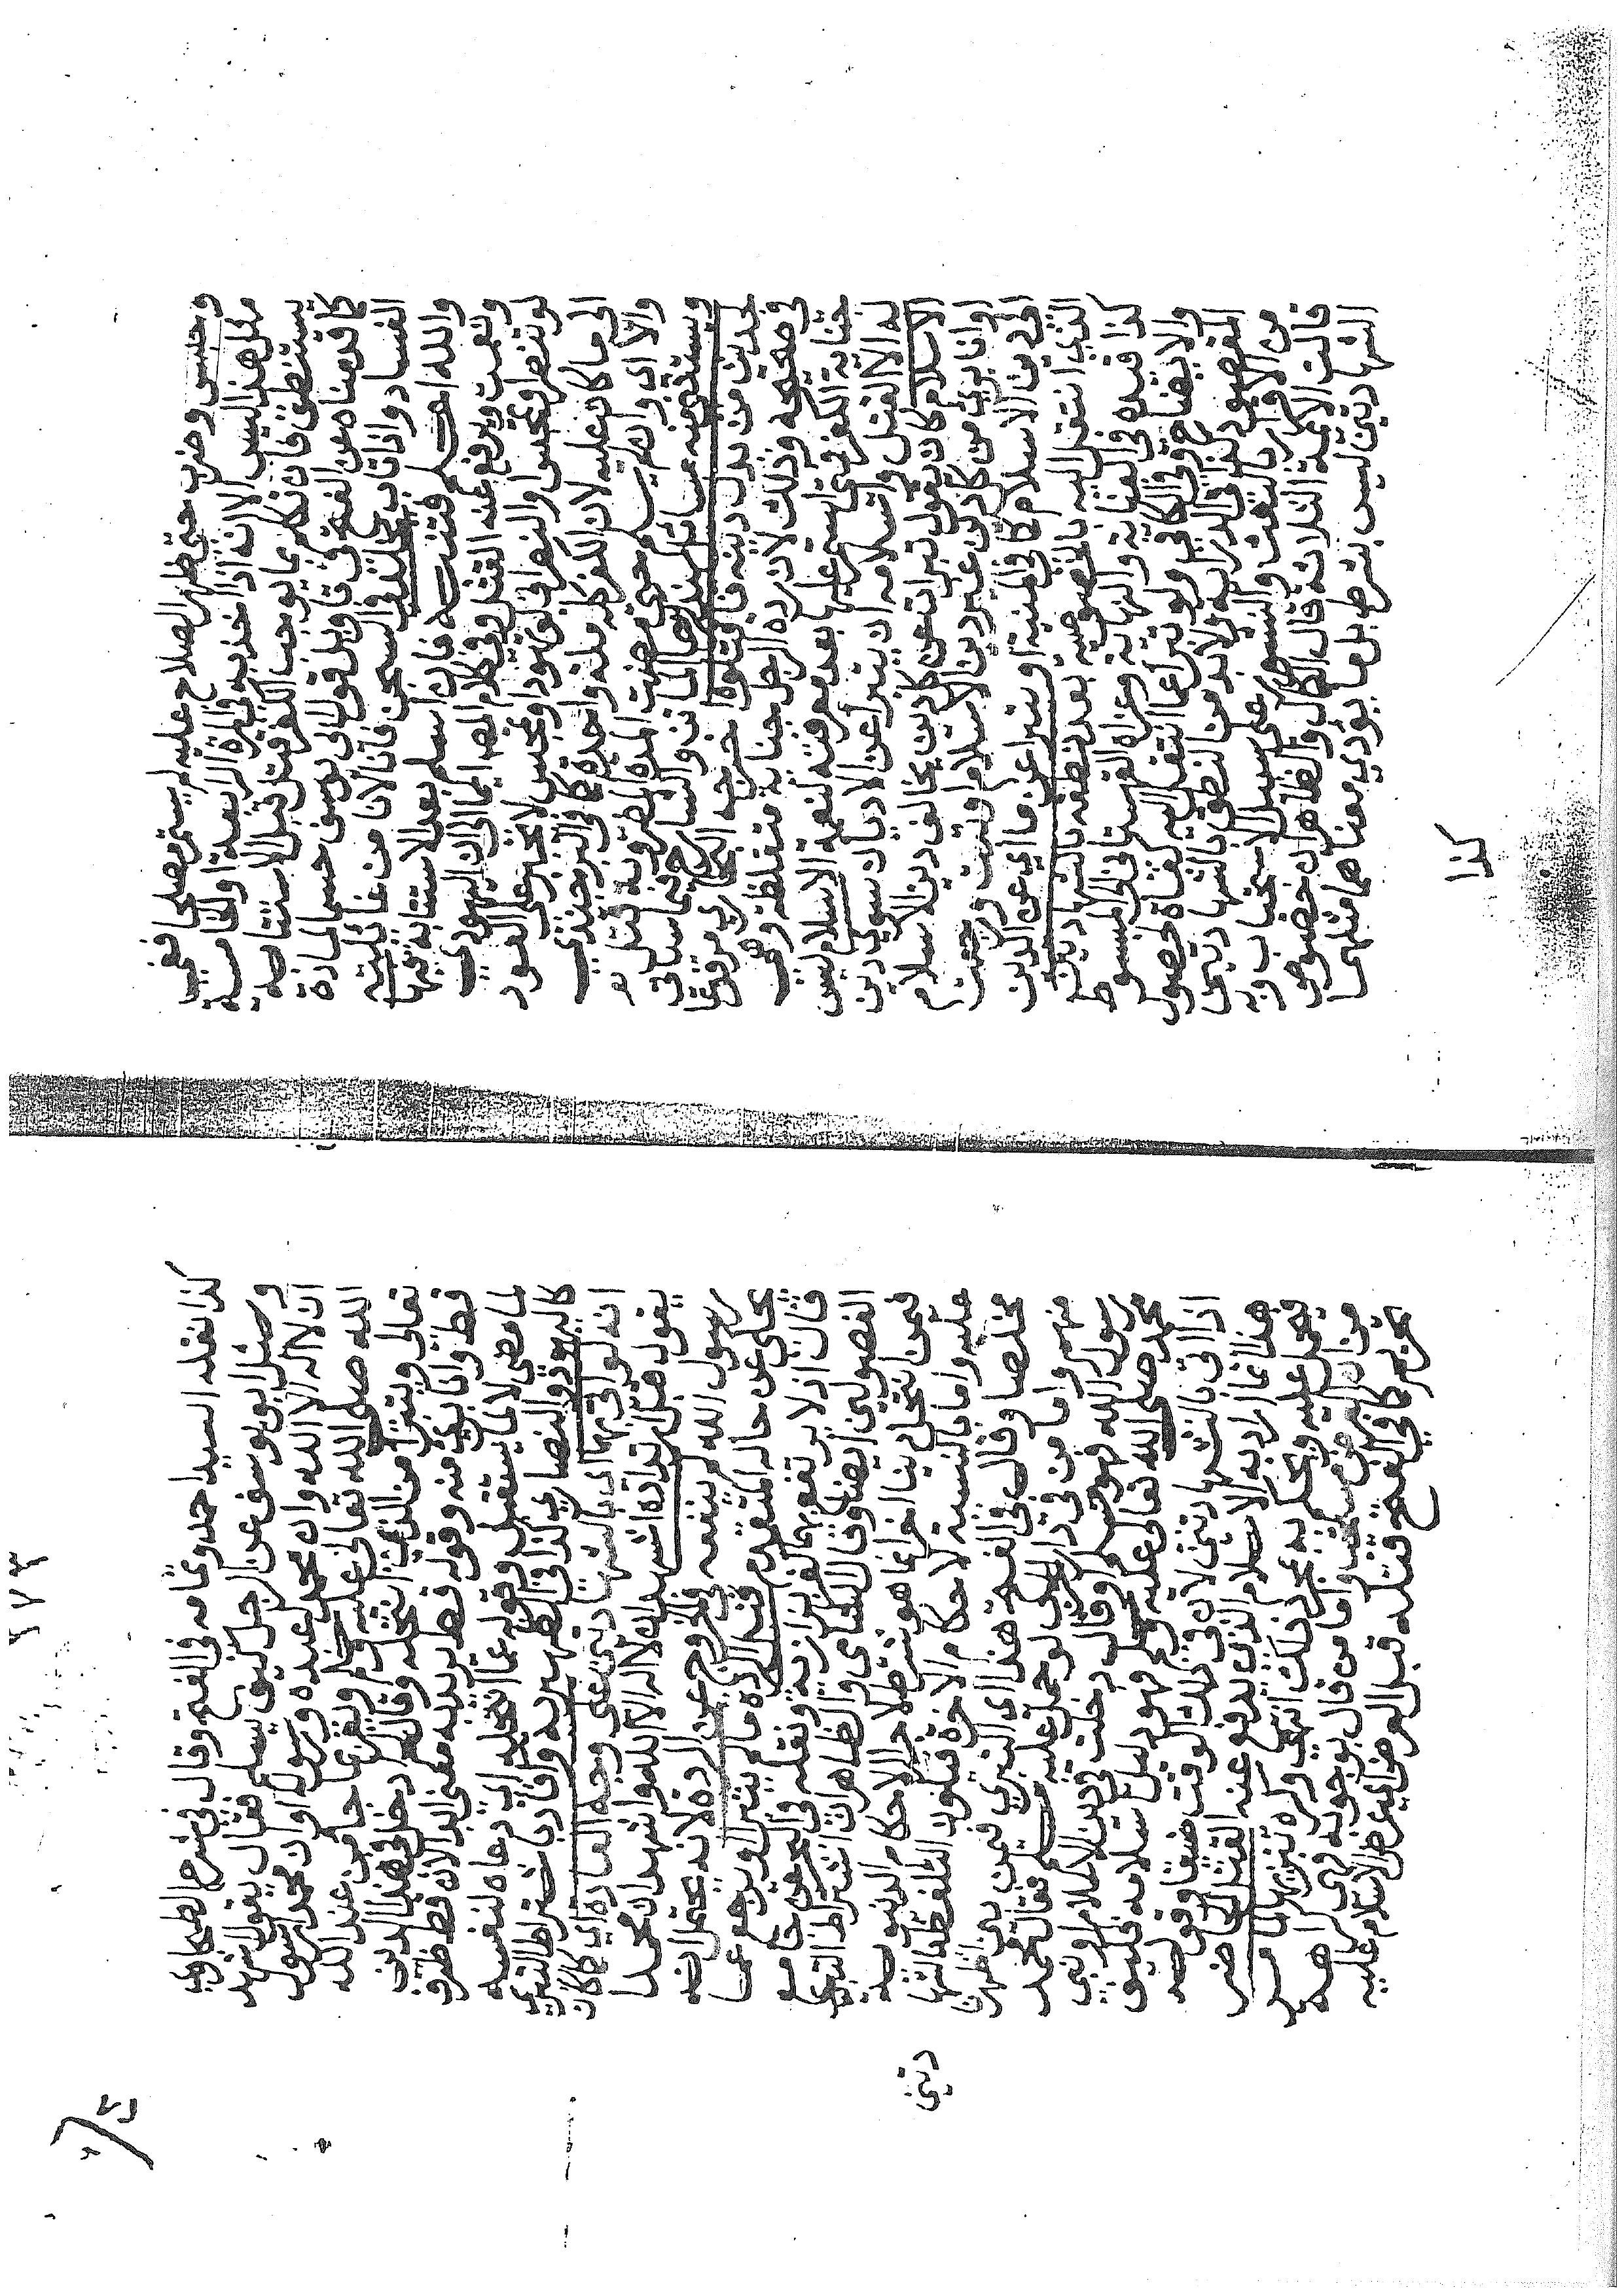 وحبس وضرب حتى يظهر الصلاح عليه لم يستمر مصلحا فحينئذ
مثل هذا ليس الا انه اذا اخذ في المرة الرابعة او الخامسة
يستنطق فان تكلم بما يوجب الكفر قتل قبل الاستتابة
كما قدمناه عن الفتح في تاويل قول ابى يوسف حسما لمادة
الفساد واذا تاب خلد في السجن فانا لا نامن غائلته
والله اعلم فان اسلم بعد الاستتابة فبها
ونعمت ويرفع عنه القتل وفى كلام المص ايماء الى ان اليهودى
لو تنصر او تمجس او النصرانى لو تهود او تمجس لا يجبر على العود
الى ما كان عليه لان الكفر كله ملة واحدة كما في البرجندى
والا اى وان لم يسلم حتى مضت المدة المضروبة قتل و
ويستثنى منه مسائل
لحديث من بدل دينه فاقتلوه اخرجه البخاري مرفوعا
فى صحيحه وذلك لان ردة الرجل جناية متغلظة وهى
جناية الكفر فى شرعنا بعد معرفته لنعمة الاسلام ليس
له الا القتل واسلامه ان يتبرأ عن الاديان سوى دين
الاسلام كان يقول تبرأت عن كل دين يخالف دين الاسلام
او انا برئ من كل دين غير دين الاسلام او تبت ورجعت
الى دين الاسلام كما في المنية او يتبرأ عن ما اي عن الدين
الذى انتقل اليه بالخصوص بعد نطقه بالشهادتين
كذا قيده فى العناية والنهاية وعزاه القهستانى الى المبسوط
والايضاح وفى الكافى ولو تبرأ عما انتقل اليه كفاه لحصول
المقصود كذا في الدراية ولا بد من النطق بالشهادتين
من الاقرار بالبعث والنشور على سبيل الاستحباب وبه
قالت الائمة الثلاثة قال الكمال والظاهر ان خصوص
الشهادتين ليس بشرط بل ما يؤدي معناهما مثلهما
كذا
كذا نقله السيد احمد وتمامه فى الفتح وقال فى شرح الطحاوى
وسئل ابو يوسف عن الرجل كيف يسلم فقال يقول اشهد
ان لا اله الا الله وان محمدا عبده ورسوله او ان محمدا رسول
الله صلى الله تعالى عليه وسلم ويقر بما جاء من عند الله
تعالى ويتبرأ من الذى انتحله وقال لم ادخل فى هذا الدين
قط وانا برئ منه وقوله قط يريد به معنى ابدا لان قط ظرف
لما مضى لا لما يستقبل وقوله عما انتحله اي ادعاه لنفسه
كاليهود والنصارى كذا فى الظهيرية وافاد باشتراط التبرى
انه لو اتى بهما اى بالشهادتين على وجه العادة اى كما كان
يقول قبل ارتداده اشهد ان لا اله الا الله واشهد ان محمدا
رسول الله لم ينفعه فى الخروج عن الردة لانه يحتمل انه
يحكى عن حاله المتقدم قبل الردة ما لم يتبرأ او يرجع عما
قال اذ لا يرتفع بهما كفره بزازية ونقله فى البحر عن جامع
الفصولين ايضا وقال الشامى والظاهر ان اشتراط التبرى
فيمن انتحل دينا اخر انما هو شرط لاجراء الاحكام الدنيوية
عليه واما بالنسبة لاحكام الاخرة فيكون التلفظ بالشها
دتين
مخلصا وقال فى الفتح هذا اى التبري فيمن بين اظهرنا
منهم واما من فى دار الحرب لو حمل عليه مسلم فقال محمد
رسول الله فهو مسلم او قال دخلت فى دين الاسلام او دين
محمد صلى الله تعالى عليه وسلم فهو دليل اسلامه فكيف
اذا اتى بالشهادتين لان فى ذلك الوقت ضيقا وقوله
هذا انما اراد به الاسلام الذى يدفع عنه القتل الحاضر
فيحمل عليه ويحكم به بمجرد ذلك انتهى وكره تنزيها لما مر
من ان العرض مستحب واما من قال بوجوبه فهى كراهة
تحريم كما فى الفتح قتله قبل العرض اى عرض الاسلام عليه